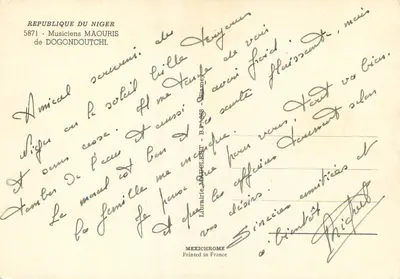 RÉPUBLIQUE DU NIGER
5871 - Musiciens MAOURIS
de DOGONDOUTCHI.
Amical souvenir du
Niger où le soleil brille toujours
et sans cesse. Il me tarde de voir
tomber de l'eau et aussi avoir froid.
Le moral est bon et la santé florissante, mais
la famille me manque.
Je pense que pour vous, tout va bien.
et que les affaires tournent selon
vos désirs.
Sincères amitiés et
à bientôt
Librairie MAUCLERT - B. P.
MEXICHROME
Printed in France